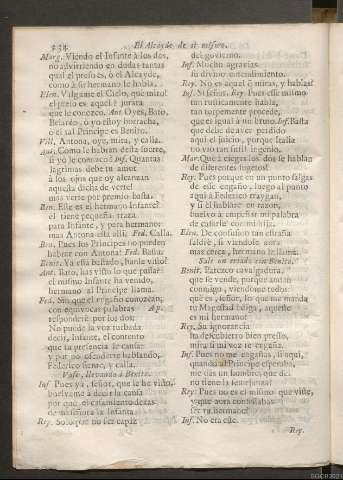 234 El Alcayde de si mismo.
Marg. Viendo el Infante à los dos,
no advirtiendo en dudas tantas
qual el preso es, ò el Alcayde,
como à su hermano le habla.
Elen. Valgame el Cielo, què miro!
el preso es aquel? jurara
que le conozco. Ant. Oyes, Bato,
Belardo, ò yo estoy borracha,
ò es tal Principe es Benito.
Vill. Antona, oye, mira, y calla.
Ant. Como le habran de fuera,
si yo le conozco? Inf. Quantas
lagrimas debe tu amor
à los ojos que oy alcanzan
aquesta dicha de verte!
mas verte por premio basta.
Ben. Este es el hermano Infante?
èl tiene pequeña traza
para Infante, y para hermano:
mas Antona està allà. Fed. Calla.
Ben. Pues los Principes no pueden
hablar con Antona? Fed. Basta:
Benit. Ya està bastado, bestie visto?
Ant. Bato, has visto lo que passa?
el mismo Infante ha venido,
hermano al Principe llama.
Fed. Sin que el engaño conozcan,
con equivocas palabras Ap.
responderè por los dos:
No puede la voz turbada
decir, Infante, el contento
que tu presencia le causa:
y por no ofenderte hablando,
Federico siente, y calla.
Vase, llevando à Benito.
Inf. Pues yà, señor, que le he visto,
buelveme à decir la causa
por què el casamiento dexas
de mi señora la Infanta.
Rey. Solo que no ser capaz
del govierno.
Inf. Mucho agravias
su divino entendimiento.
Rey. No es aquel q miras, y hablas?
Inf. Si señor. Rey. Pues esse mismo
tan rusticamente habla,
tan torpemente procede,
que es igual à un bruto. Inf. Basta
que debe de aver perdido
aqui el juicio, porque Italia
no viò tan sutil ingenio.
Mar. Què à ciegas los dos se hablan
de diferentes sugetos!
Rey. Pues porque en un punto salgas
de esse engaño, luego al punto
aqui à Federico traygan,
y si èl hablàre en razon,
buelvo à empeñar mi palabra
de casarle con mi hija.
Elen. De confusion tan estraña
saldrè, si viendole aora
mas cerca, hermano le llama.
Sale un criado con Benito.
Benit. Parezco cavalgadura,
que se vende, porque andan
conmigo, viendome todos:
què es, señor, lo que me manda
tu Magestad? Diga, aqueste
es mi hermano?
Rey. Su ignorancia
ha descubierto bien presto,
mira si mi voz te engaña.
Inf. Pues no me engañas, si aqui,
quando al Principe esperaba,
me das un hombre, que del
no tiene la semejanza?
Rey. Pues no es el mismo que viste,
y que aora confessabas
ser tu hermano?
Inf. No era este.
Rey.